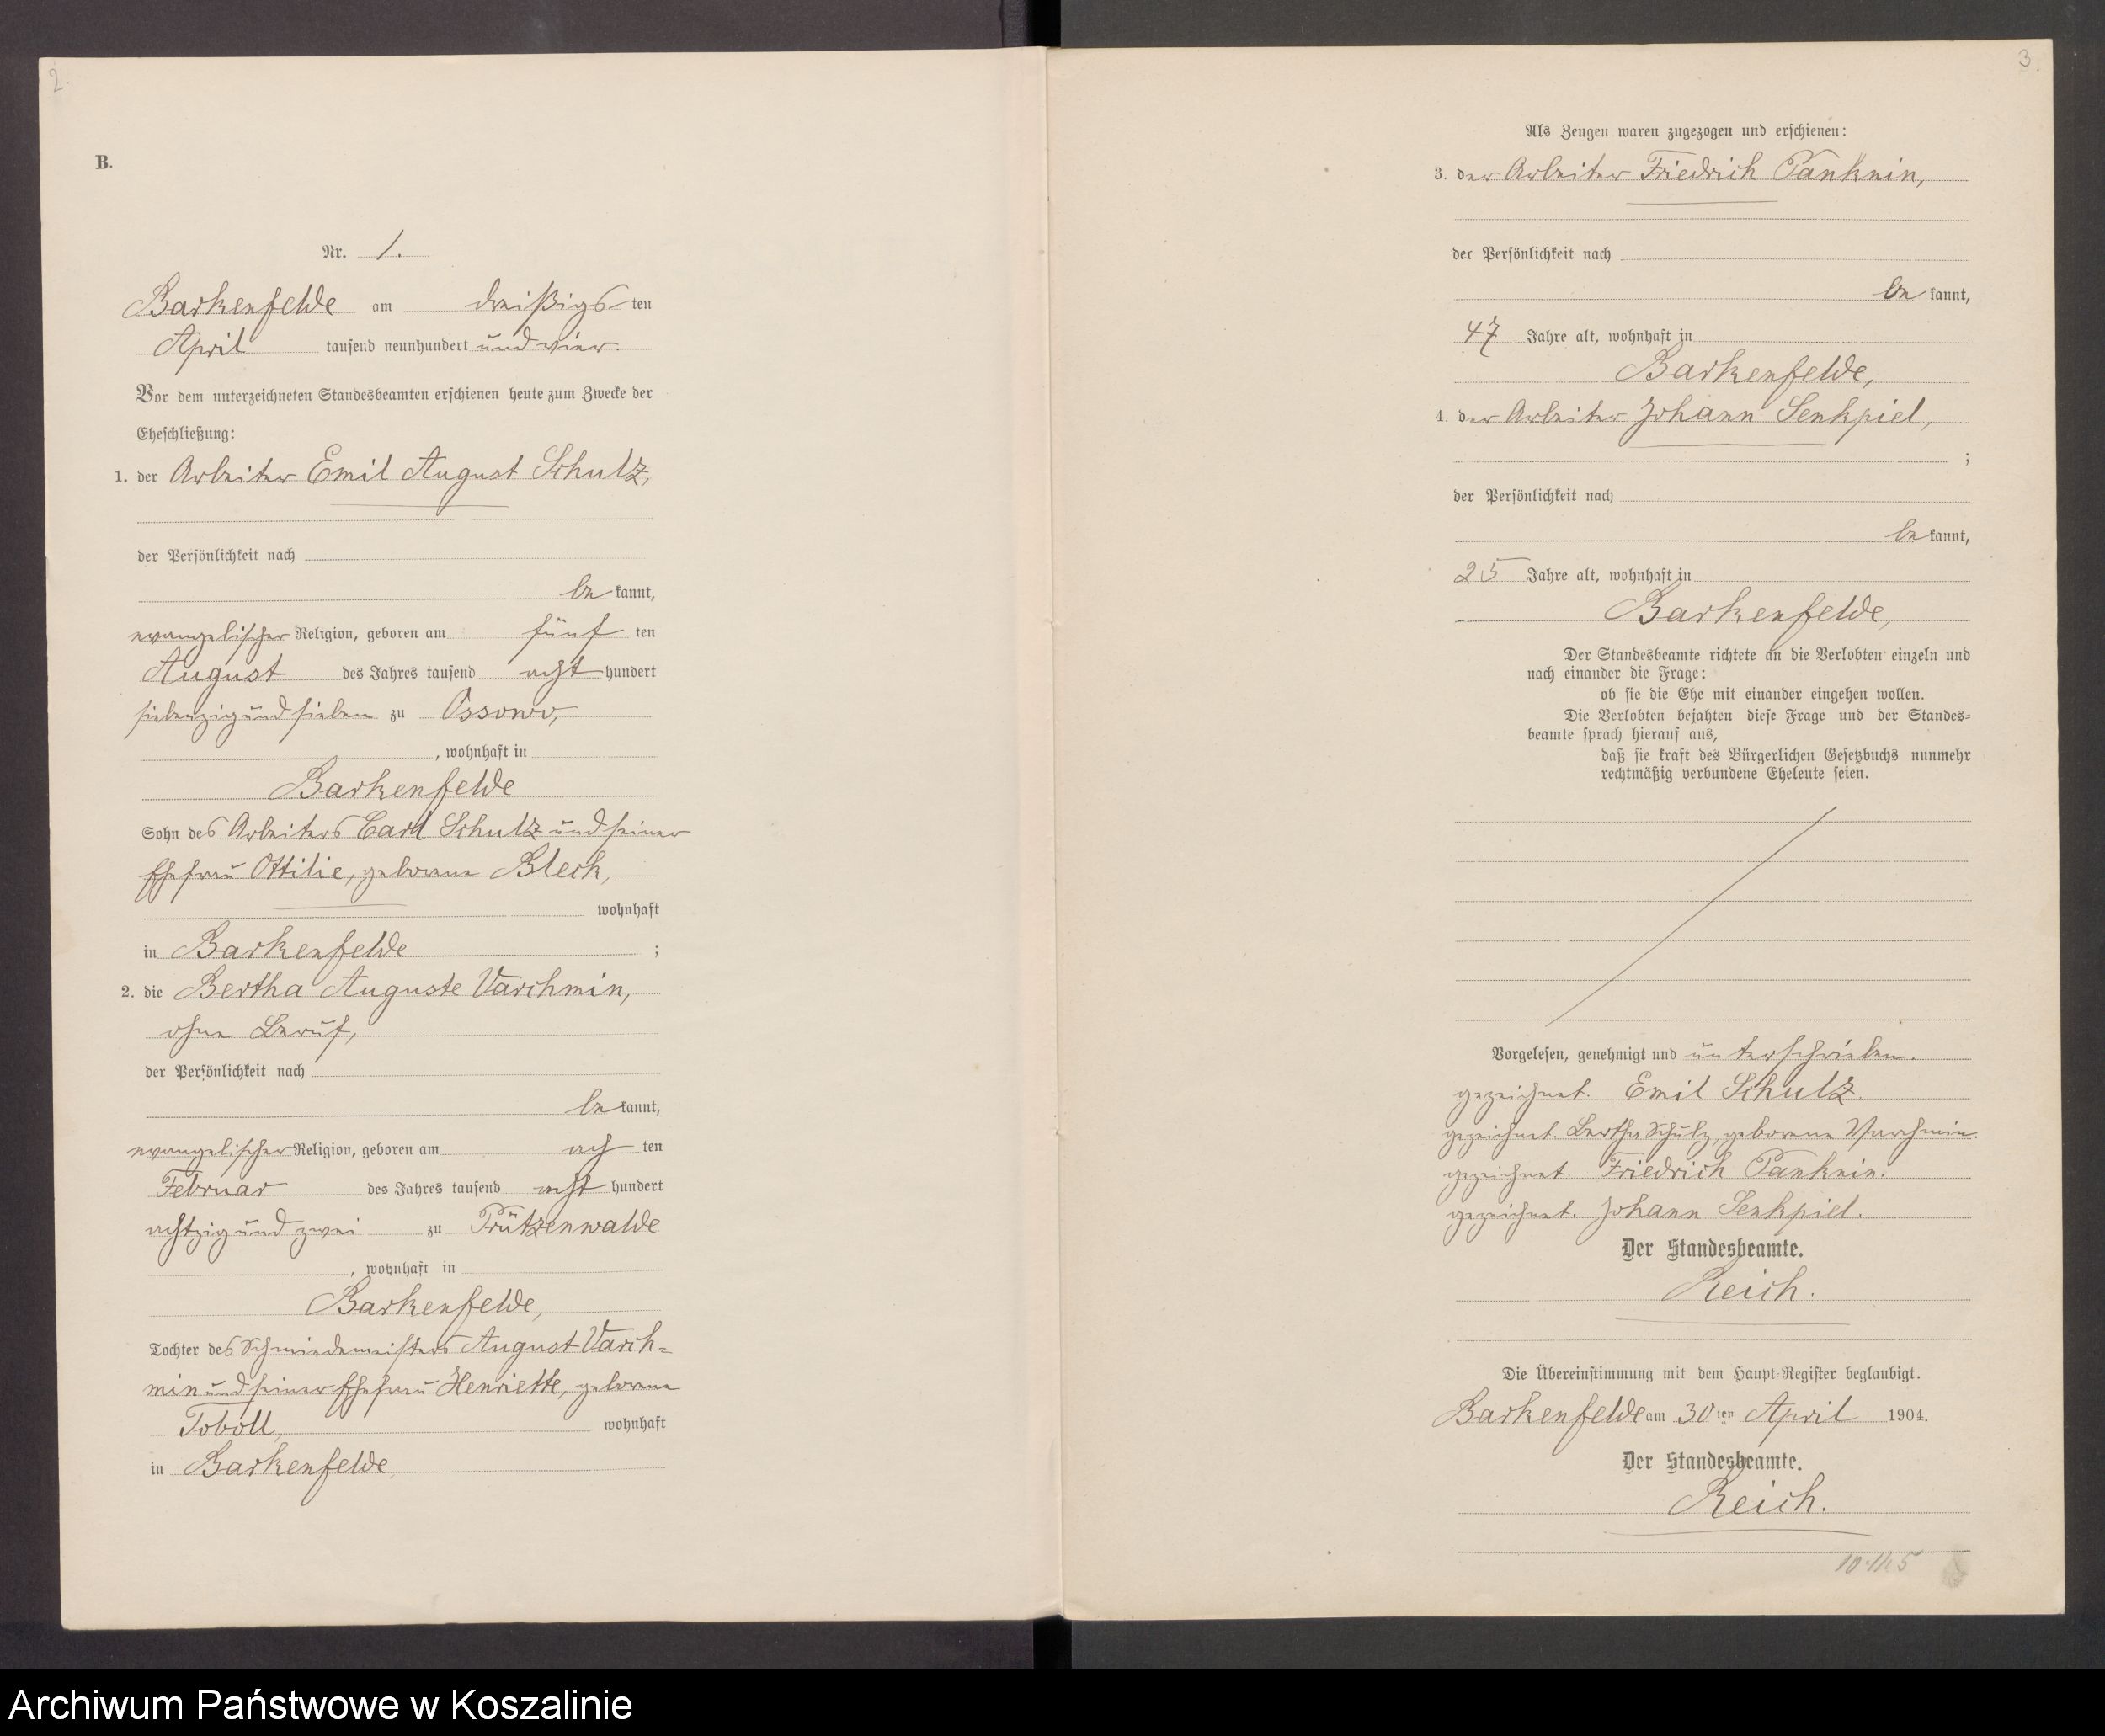 2.
B.
Nr. 1.
Barkenfelde am dreißigsten
April tausend neunhundert und vier.
Vor dem unterzeichneten Standesbeamten erschienen heute zum Zwecke der
Eheschließung:
1. der Arbeiter Emil August Schulz,
der Persönlichkeit nach
bekannt,
evangelischer Religion, geboren am fünften
August des Jahres tausend achthundert
siebenzig und sieben zu Ossowo,
, wohnhaft in
Barkenfelde
Sohn des Arbeiters Carl Schulz und seiner
Ehefrau Ottilie, geborene Bleck,
wohnhaft
in Barkenfelde ;
2. die Bertha Auguste Varchmin,
ohne Beruf,
der Persönlichkeit nach
bekannt,
evangelischer Religion, geboren am achten
Februar des Jahres tausend achthundert
achtzig und zwei zu Prützenwalde
, wohnhaft in
Barkenfelde,
Tochter des Schmiedemeisters August Varch=
min und seiner Ehefrau Henriette, geborene
Toboll, wohnhaft
in Barkenfelde
3.
Als Zeugen waren zugezogen und erschienen:
3. der Arbeiter Friedrich Panknin,
der Persönlichkeit nach
bekannt,
47 Jahre alt, wohnhaft in
Barkenfelde,
4. der Arbeiter Johann Senkpiel,
;
der Persönlichkeit nach
bekannt,
25 Jahre alt, wohnhaft in
Barkenfelde,
Der Standesbeamte richtete an die Verlobten einzeln und
nach einander die Frage:
ob sie die Ehe mit einander eingehen wollen.
Die Verlobten bejahten diese Frage und der Standes=
beamte sprach hierauf aus,
daß sie kraft des Bürgerlichen Gesetzbuchs nunmehr
rechtmäßig verbundene Eheleute seien.
Vorgelesen, genehmigt und unterschrieben.
gezeichnet. Emil Schulz.
gezeichnet. Bertha Schulz, geborene Varchmin.
gezeichnet. Friedrich Panknin.
gezeichnet. Johann Senkpiel.
Der Standesbeamte.
Reich.
Die Übereinstimmung mit dem Haupt-Register beglaubigt.
Barkenfelde am 30ten April 1904.
Der Standesbeamte.
Reich.
Archiwum Państwowe w Koszalinie